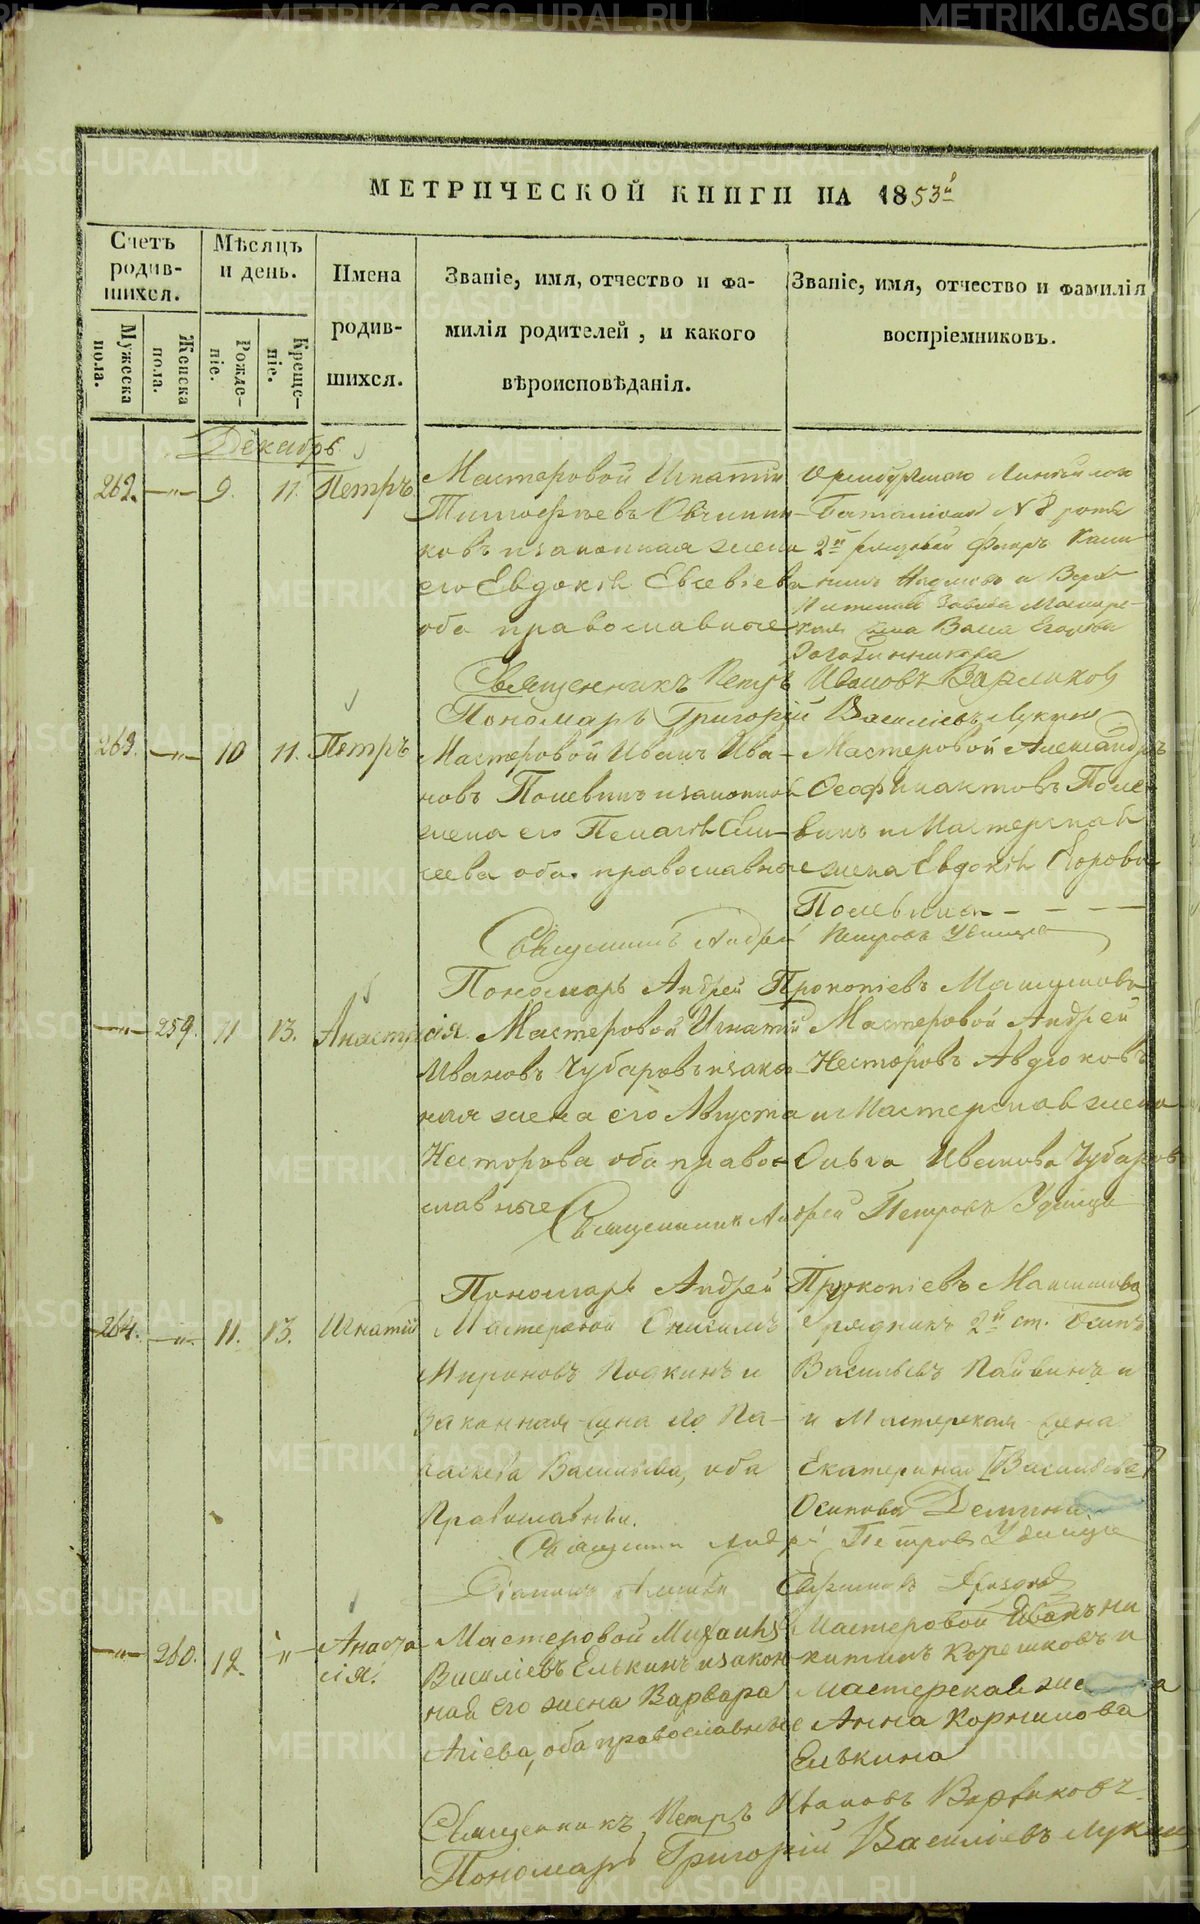 МЕТРИЧЕСКОЙ КНИГИ НА 1853й
Счетъ родив-шихся.
Мѣсяцъ и день.
Имена родив-шихся.
Званіе, имя, отчество и фа-
милія родителей, и какого
вѣроисповѣданія.
Званіе, имя, отчество и фамилія
воспріемниковъ.
Мужеска пола.
Женска пола.
Рожде-ніе.
Креще-ніе.
Декабрь
262. —"— 9. 11. Петръ
Мастеровой Игнатій
Тимофѣевъ Овчинни-
ковъ и законная жена
его Евдокія Евсевьева
оба православные
Оренбургскаго Линейнаго
Баталіона N 8 роты
2й
и Верхъ
Завода Мастер-
ская Егорова
Священникъ Петръ Ивановъ
Пономарь Григорій Василіевъ Лукинъ
263. —"— 10 11. Петръ
Мастеровой Иванъ Ива-
новъ Полевинъ и законной
жена его Пелагія Ели-
сеева оба православные
Мастеровой Александръ
Ѳеофилактовъ Поле-
винъ и Мастерская
жена Евдокія Егорова
Полевина
Священникъ Андрей Петровъ Удинцевъ
Пономарь Андрей Прокопіевъ
—"— 259. 11 13. Анастасія.
Мастеровой Игнатій
Ивановъ Чубаровъ и закон-
ная жена его Августа
Несторова оба право-
славные
Мастеровой Андрей
Несторовъ Авдюковъ
и Мастерская жена
Ольга Иванова Чубарова
Священникъ Андрей Петровъ Удинцевъ
Пономарь Андрей Прокопіевъ
264. —"— 11. 13. Игнатій
Мастеровой Онисимъ
Мироновъ и
Законная жена его Па-
раскева Васильева, оба
Православные.
Урядникъ 2й ст. Осипъ
Васильевъ и
и Мастерская жена
Екатерина [Васильева]
Осипова Демина
Священникъ Андрей Петровъ Удинцевъ
—"— 260. 12. "
Анаста-
сія.
Мастеровой Михаилъ
Василіевъ Елькинъ и закон-
ная его жена Варвара
Агіева, оба православные
Мастеровой Иванъ Ни-
китинъ Корешковъ и
Мастерская жена
Анна Корнилова
Елькина
Священникъ Петръ Ивановъ
Пономарь Григорій Василіевъ Лукинъ
METRIKI.GASO-URAL.RU